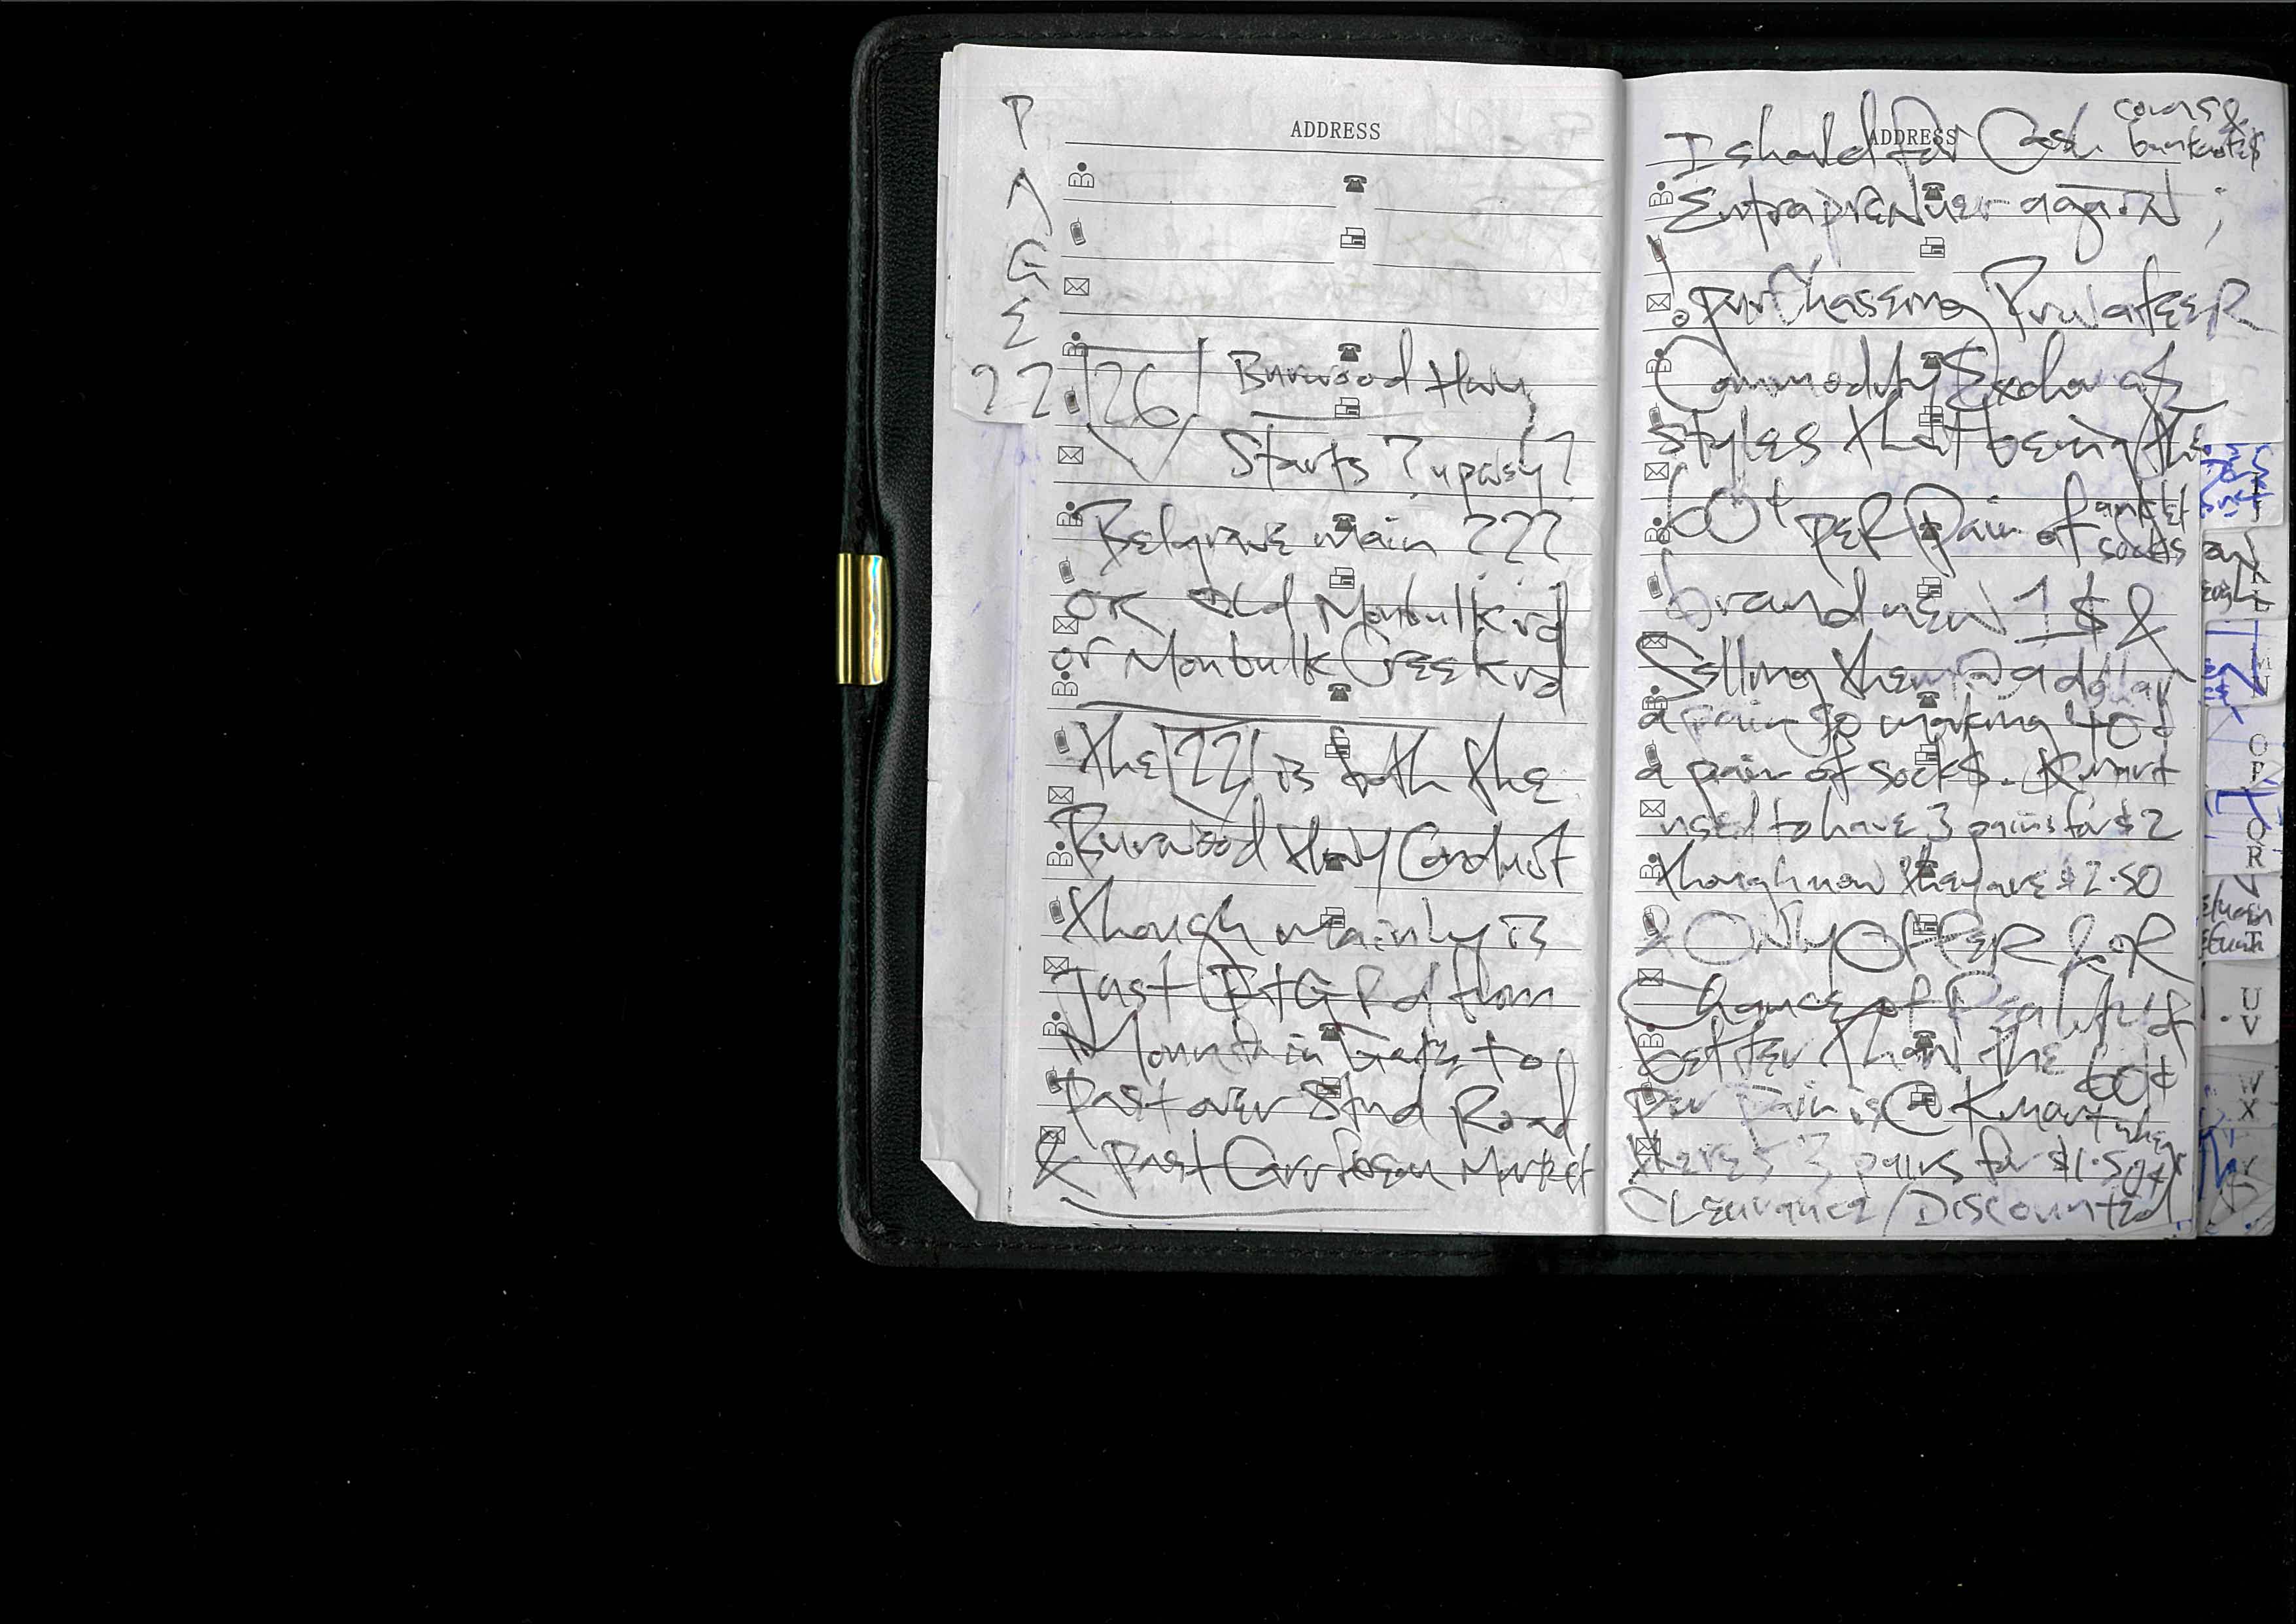 PAGE
22
ADDRESS
26 Burwood Hwy
Starts ? upwey?
Belgrave Main ???
OR Old Monbulk rd
or Monbulk Creek rd
The 22 is both the
Burwood Hwy Conduit
though mainly is
Just FtG Rd from
Mountain Gate to
Past over Stud Road
& Past Carribean Market
ADDRESS
I should for Cash coins & banknotes
Entraprenuer again ;
purchaseing Privateer
Commodity
styles that being the
60¢ PER Pair of anklet socks
brand new 1$ &
Selling them @ a dollar
a pair so making 40¢
a pair of sock$. Kmart
used to have 3 pairs for $2
though now they are $2.50
& ONly OFFER & OR
Chance of Reality of
better than the 60¢
per pair is @ Kmart when
theres 3 pairs for $1.50
CLEarance/Discounted
O
P
Q
R
T
U
V
W
X